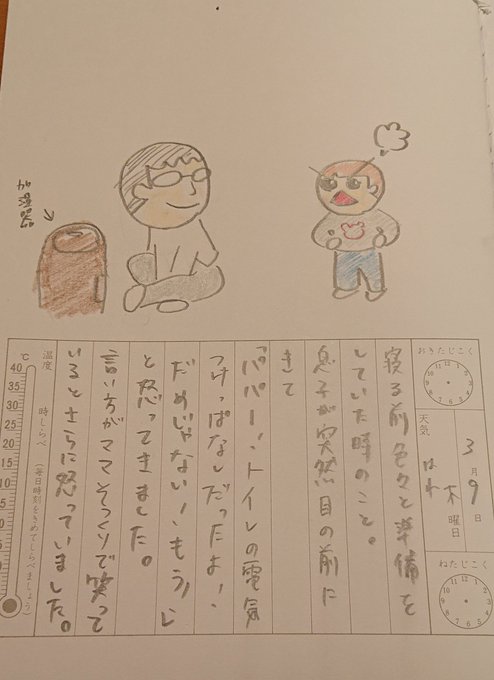 加湿器
おきたじこく
天気
はれ
3月9日
木曜日
ねたじこく
寝る前色々と準備を
していた時のこと。
息子が突然目の前に
きて
「パパー！トイレの電気
つけっぱなしだったよ！
だめじゃない！もう！」
と怒ってきました。
言い方がママそっくりで笑って
いるとさらに怒っていました。
温度 時しらべ（毎日時刻をきめてしらべましょう）
℃
40
35
30
25
20
15
10
5